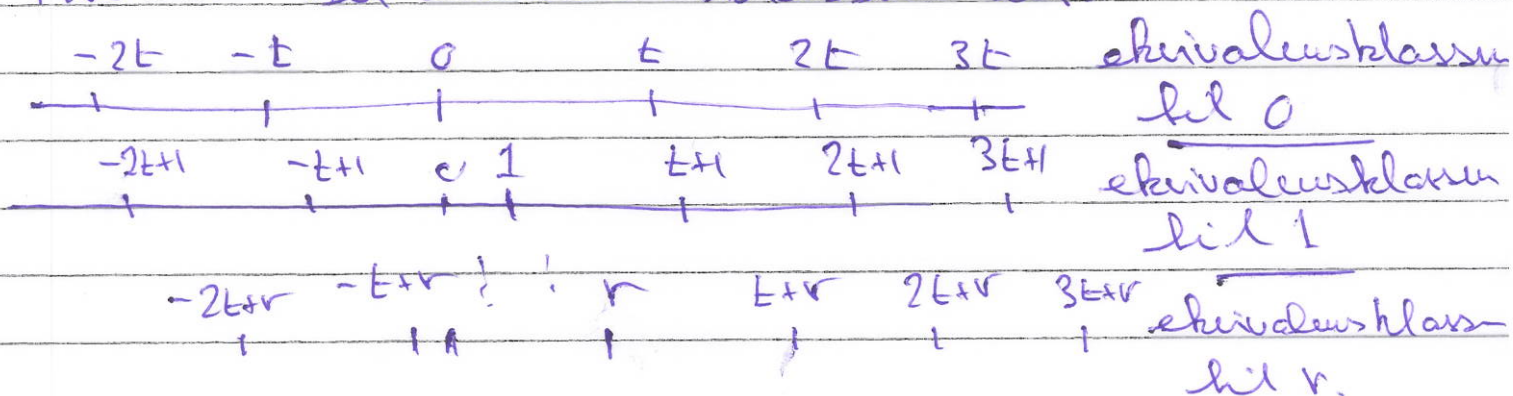 -2t -t 0 t 2t 3t ekvivalensklassen
til 0
-2t+1 -t+1 0 1 t+1 2t+1 3t+1 ekvivalensklassen
til 1
-2t+r -t+r r t+r 2t+r 3t+r ekvivalensklassen
til r.